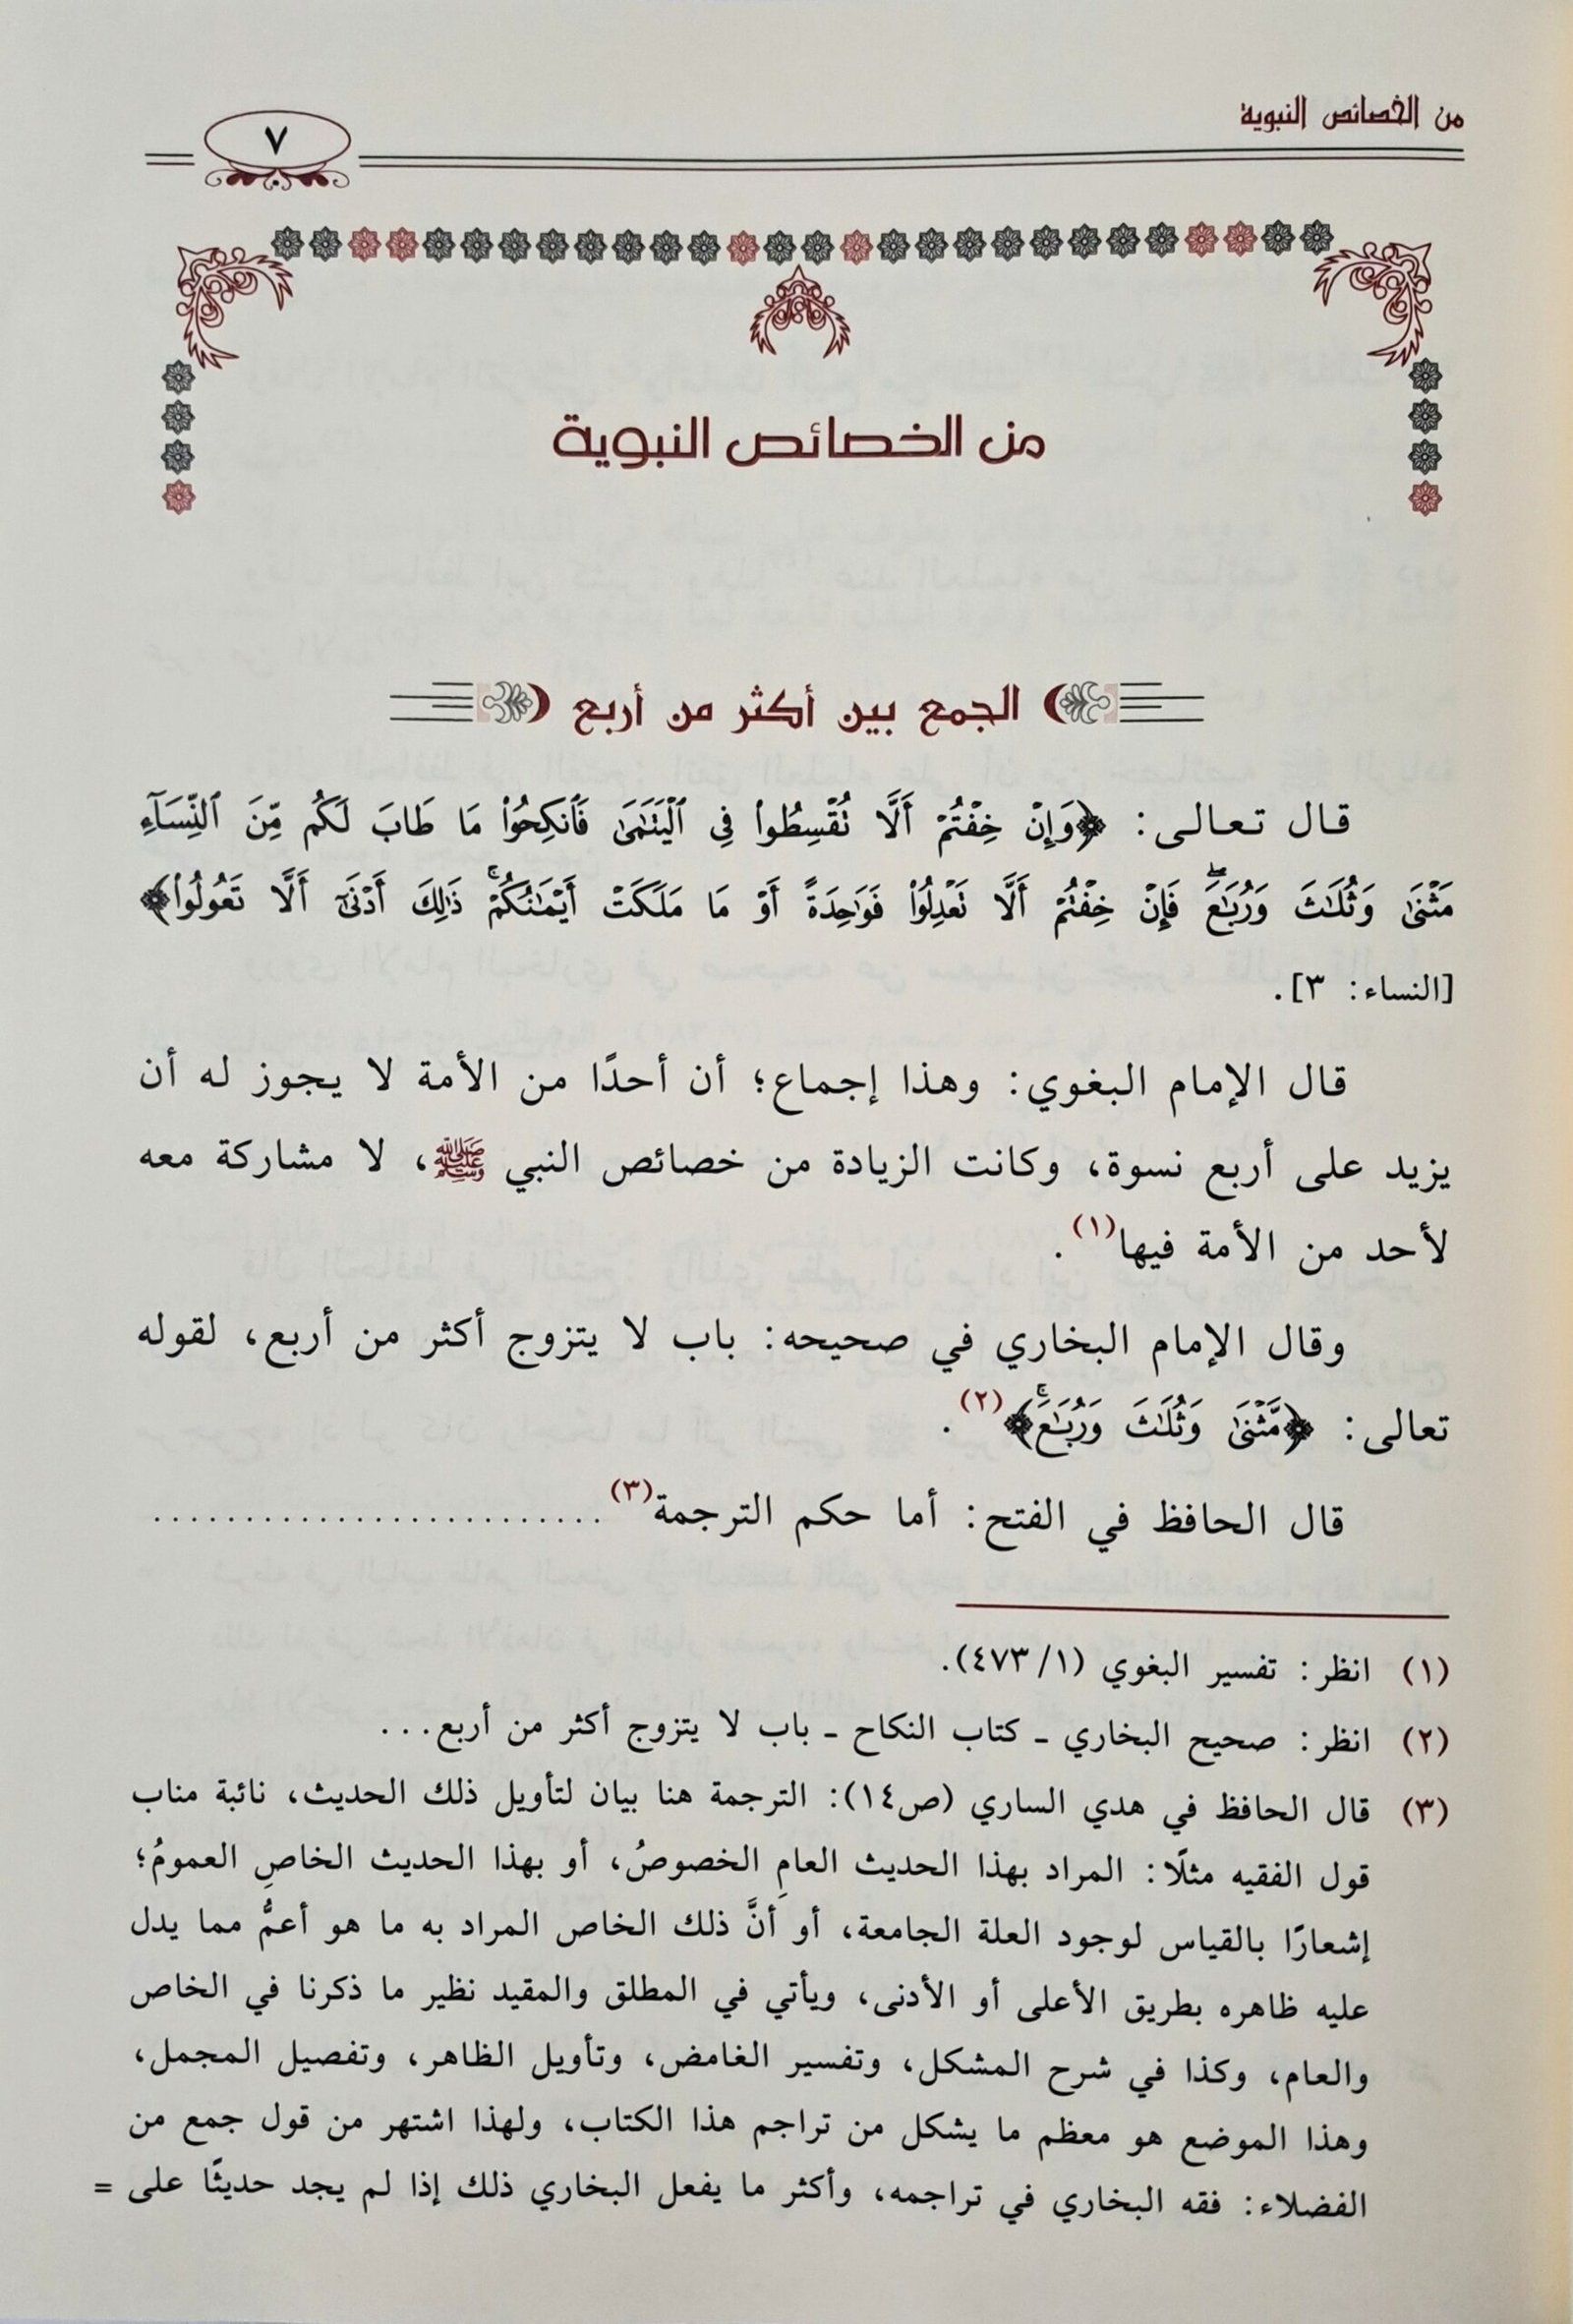 من الخصائص النبوية
٧
من الخصائص النبوية
الجمع بين أكثر من أربع
قال تعالى: ﴿وَإِنْ خِفْتُمْ أَلَّا تُقْسِطُوا۟ فِى ٱلْيَتَـٰمَىٰ فَٱنكِحُوا۟ مَا طَابَ لَكُم مِّنَ ٱلنِّسَآءِ
مَثْنَىٰ وَثُلَـٰثَ وَرُبَـٰعَ ۖ فَإِنْ خِفْتُمْ أَلَّا تَعْدِلُوا۟ فَوَٰحِدَةً أَوْ مَا مَلَكَتْ أَيْمَـٰنُكُمْ ۚ ذَٰلِكَ أَدْنَىٰٓ أَلَّا تَعُولُوا۟﴾
[النساء: ٣].
قال الإمام البغوي: وهذا إجماع؛ أن أحدًا من الأمة لا يجوز له أن
يزيد على أربع نسوة، وكانت الزيادة من خصائص النبي ﷺ، لا مشاركة معه
لأحد من الأمة فيها(١).
وقال الإمام البخاري في صحيحه: باب لا يتزوج أكثر من أربع، لقوله
تعالى: ﴿مَّثْنَىٰ وَثُلَـٰثَ وَرُبَـٰعَ ۚ﴾(٢).
قال الحافظ في الفتح: أما حكم الترجمة(٣) .........................
(١) انظر: تفسير البغوي (١/ ٤٧٣).
(٢) انظر: صحيح البخاري - كتاب النكاح - باب لا يتزوج أكثر من أربع...
(٣) قال الحافظ في هدي الساري (ص١٤): الترجمة هنا بيان لتأويل ذلك الحديث، نائبة مناب
قول الفقيه مثلًا: المراد بهذا الحديث العامِ الخصوصُ، أو بهذا الحديث الخاصِ العمومُ؛
إشعارًا بالقياس لوجود العلة الجامعة، أو أنَّ ذلك الخاص المراد به ما هو أعمُّ مما يدل
عليه ظاهره بطريق الأعلى أو الأدنى، ويأتي في المطلق والمقيد نظير ما ذكرنا في الخاص
والعام، وكذا في شرح المشكل، وتفسير الغامض، وتأويل الظاهر، وتفصيل المجمل،
وهذا الموضع هو معظم ما يشكل من تراجم هذا الكتاب، ولهذا اشتهر من قول جمع من
الفضلاء: فقه البخاري في تراجمه، وأكثر ما يفعل البخاري ذلك إذا لم يجد حديثًا على =